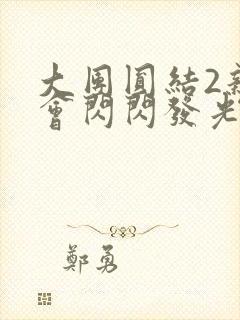 大團圓結2新
會閃閃發光
鄭勇